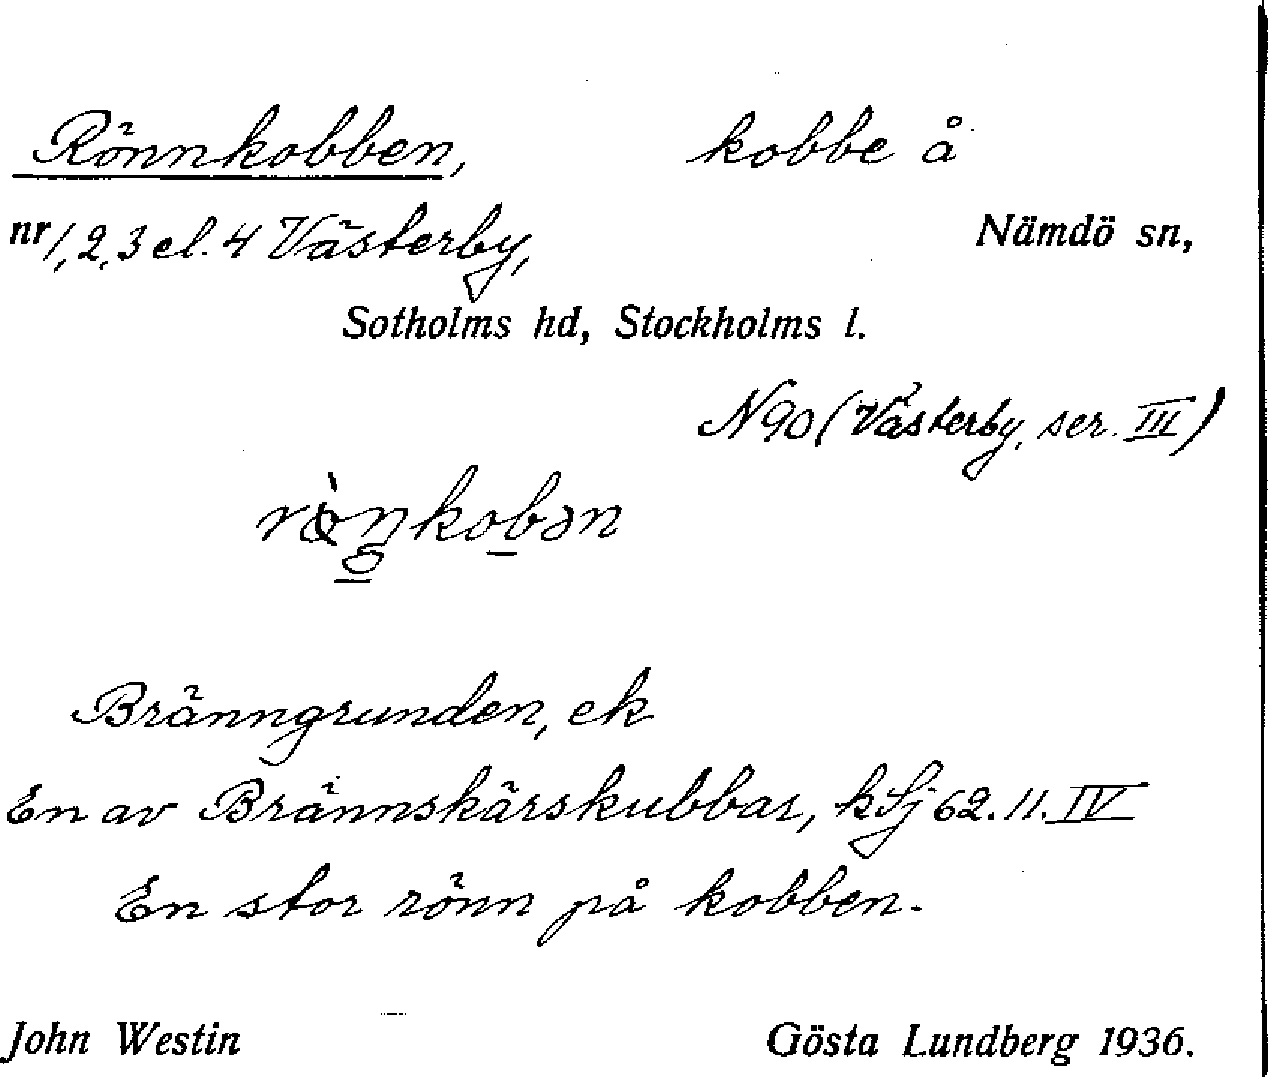 Rönnkobben, kobbe å
nr 1, 2, 3 el. 4 Västerby, Nämdö sn,
Sotholms hd, Stockholms l.
N90 (Västerby, ser. III)
Bränngrunden, ek
En av Brännskärskubbar, kSj 62.11.IV
En stor rönn på kobben.
John Westin Gösta Lundberg 1936.